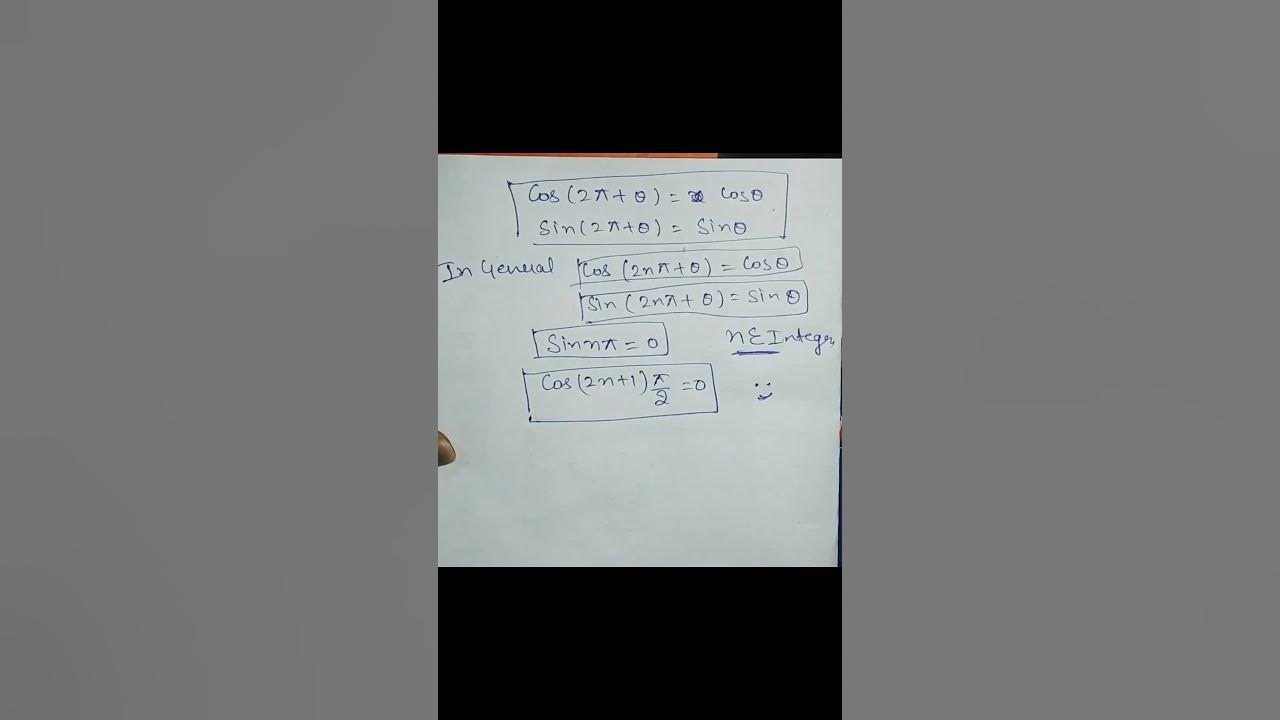 Cos(2π+θ) = Cosθ
Sin(2π+θ) = Sinθ
In General Cos (2nπ+θ) = Cosθ
Sin (2nπ+θ) = Sinθ
Sin nπ = 0 n ∈ Integer
Cos(2n+1)π/2 = 0